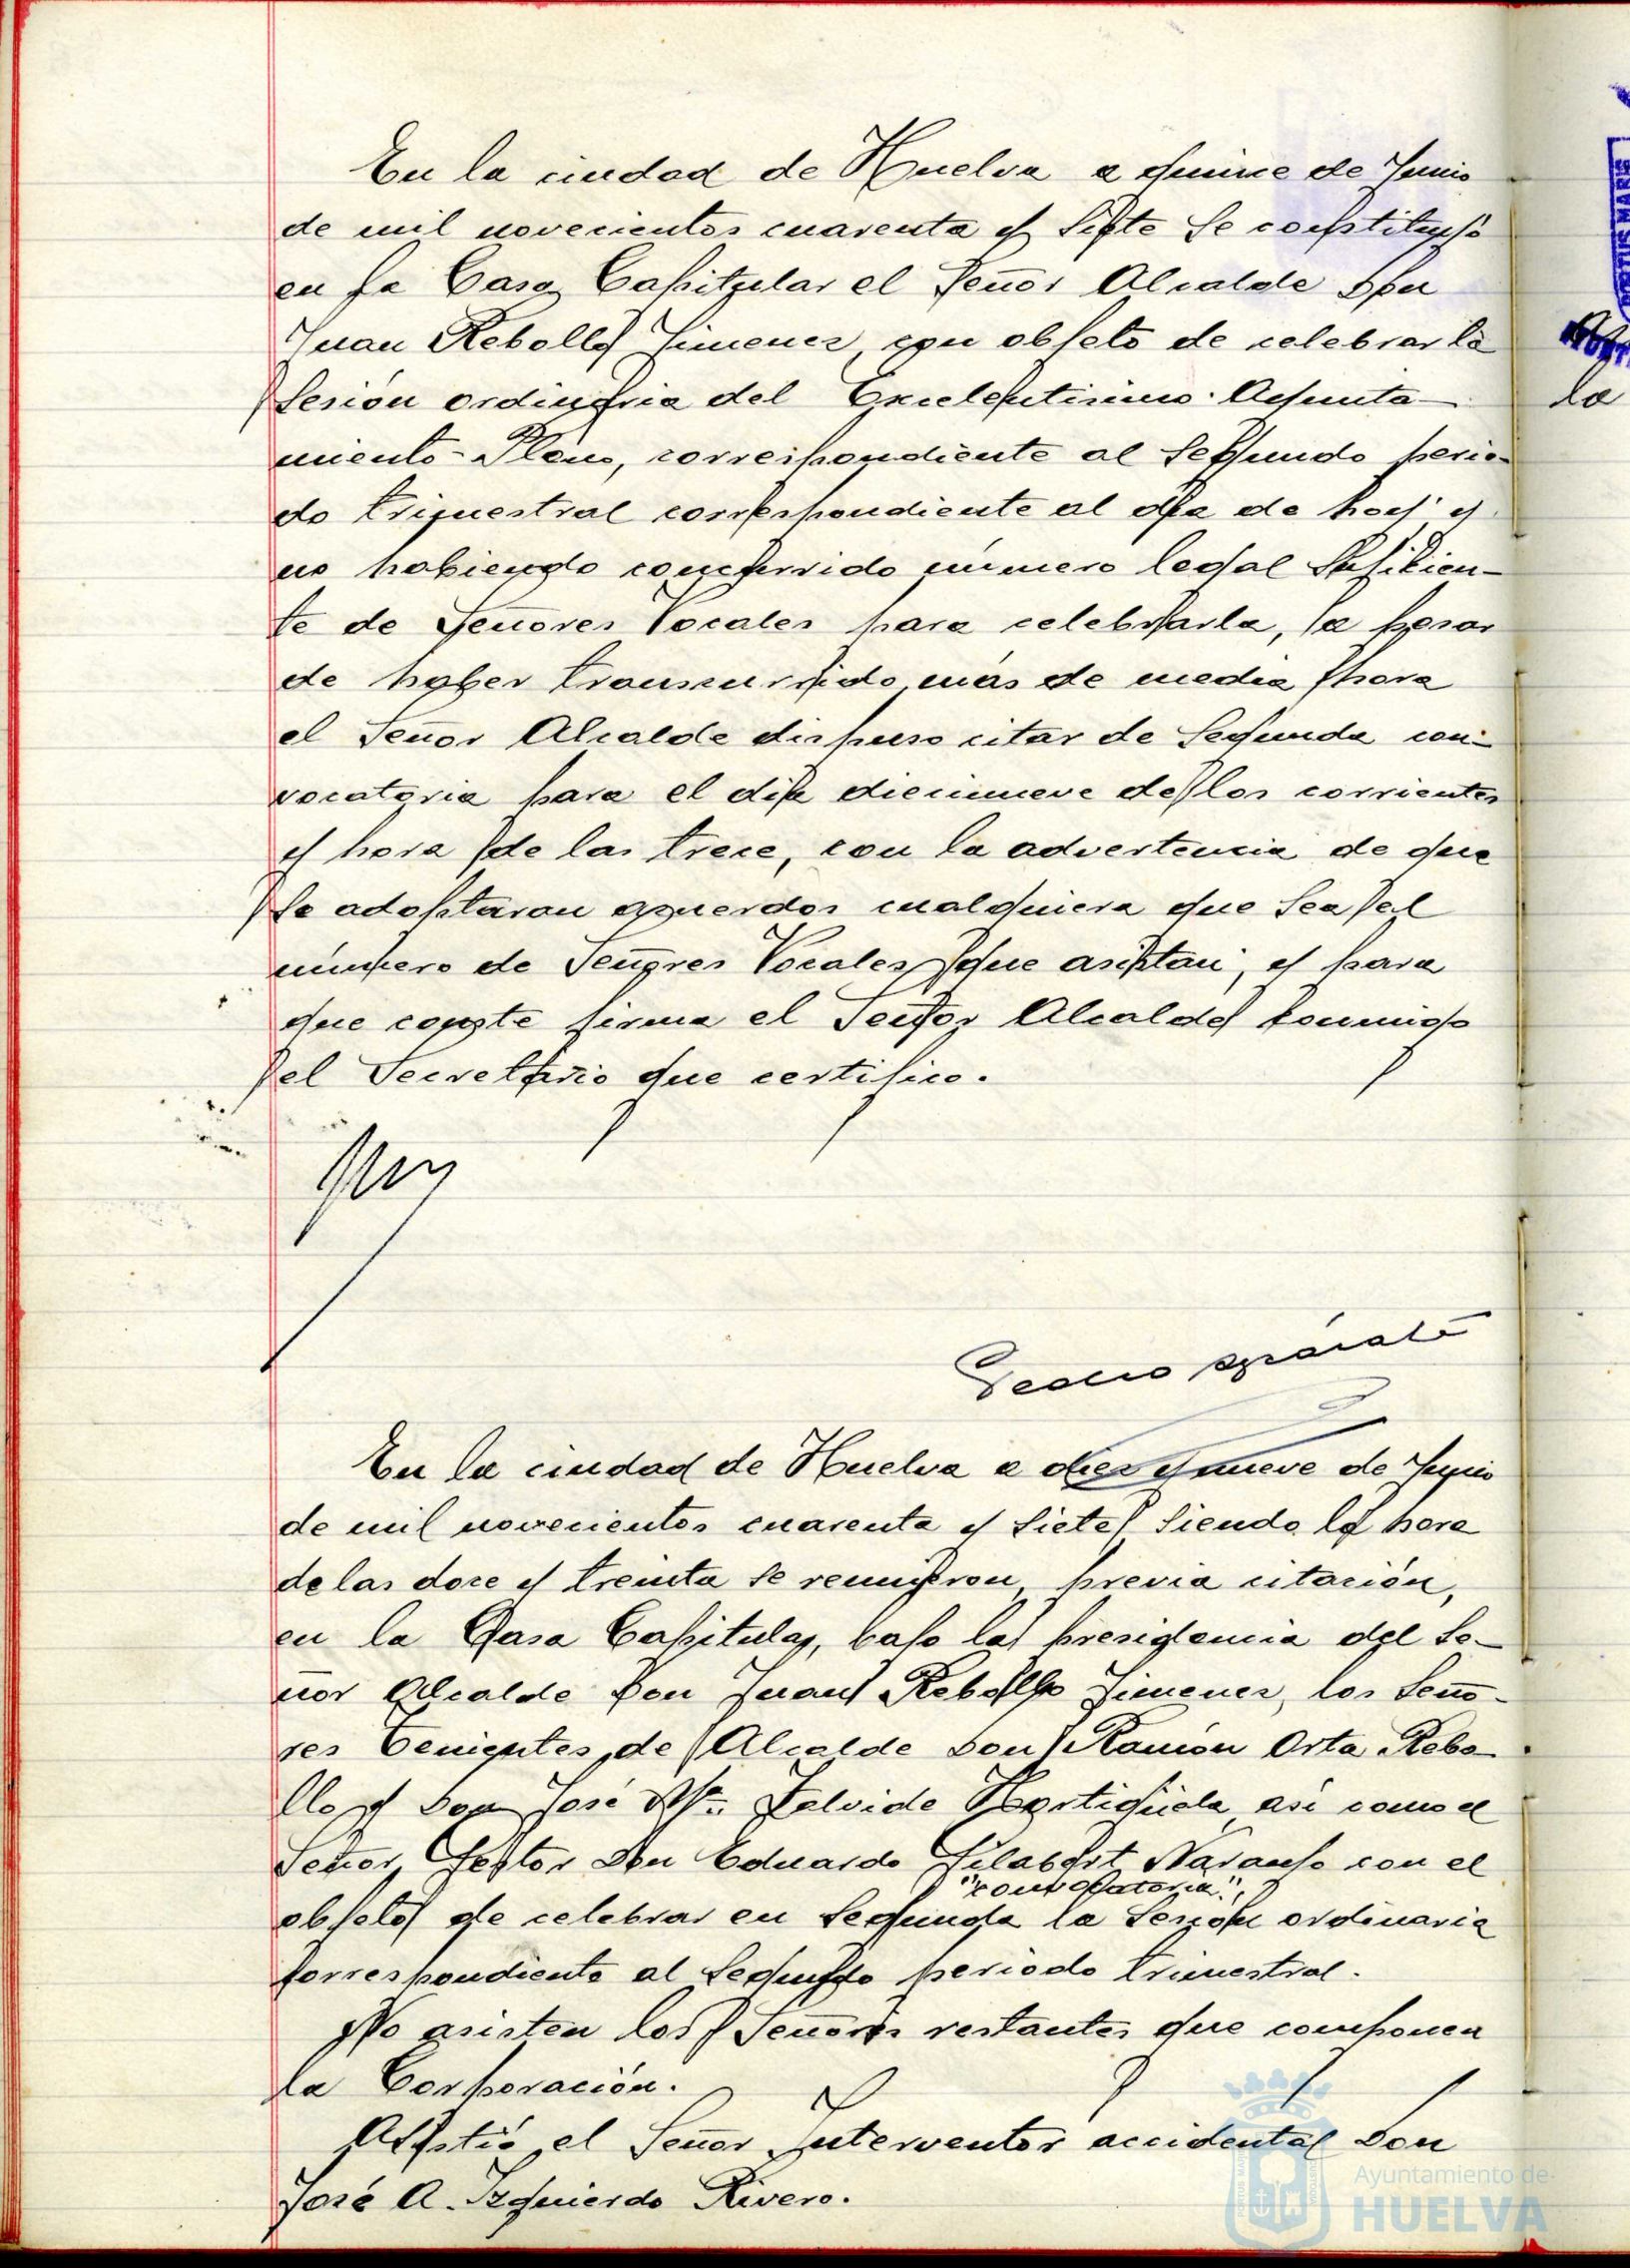 En la ciudad de Huelva a quince de Junio
de mil novecientos cuarenta y siete se constituyó
en la Casa Capitular el Señor Alcalde Don
Juan Rebollo Jimenez, con objeto de celebrar la
sesión ordinaria del Excelentisimo Ayunta-
miento-Pleno, correspondiente al segundo perio-
do trimestral correspondiente al día de hoy y
no habiendo concurrido número legal suficien-
te de Señores Vocales para celebrarla, a pesar
de haber transcurrido más de media hora
el Señor Alcalde dispuso citar de segunda con-
vocatoria para el día diecinueve de los corrientes
y hora de las trece, con la advertencia de que
se adoptaran acuerdos cualquiera que sea el
número de Señores Vocales que asistan, y para
que conste firma el Señor Alcalde conmigo
el Secretario que certifico.
Pedro
En la ciudad de Huelva a diez y nueve de Junio
de mil novecientos cuarenta y siete, siendo la hora
de las doce y treinta se reunieron, previa citación,
en la Casa Capitular, bajo la presidencia del Se-
ñor Alcalde Don Juan Rebollo Jimenez, los Seño-
res Tenientes de Alcalde Don Ramón Orta Rebo-
llo y Don José Mª. Zalvide Hortigüela así como el
Señor Gestor Don Eduardo Gilabert Naranjo con el
"convocatoria",
objeto de celebrar en segunda la sesión ordinaria
correspondiente al segundo periodo trimestral.
No asisten los Señores restantes que componen
la Corporación.
Asistió el Señor Interventor accidental Don
José A. Izquierdo Rivero.
la
PORTUS MARIS
Ayuntamiento de
HUELVA